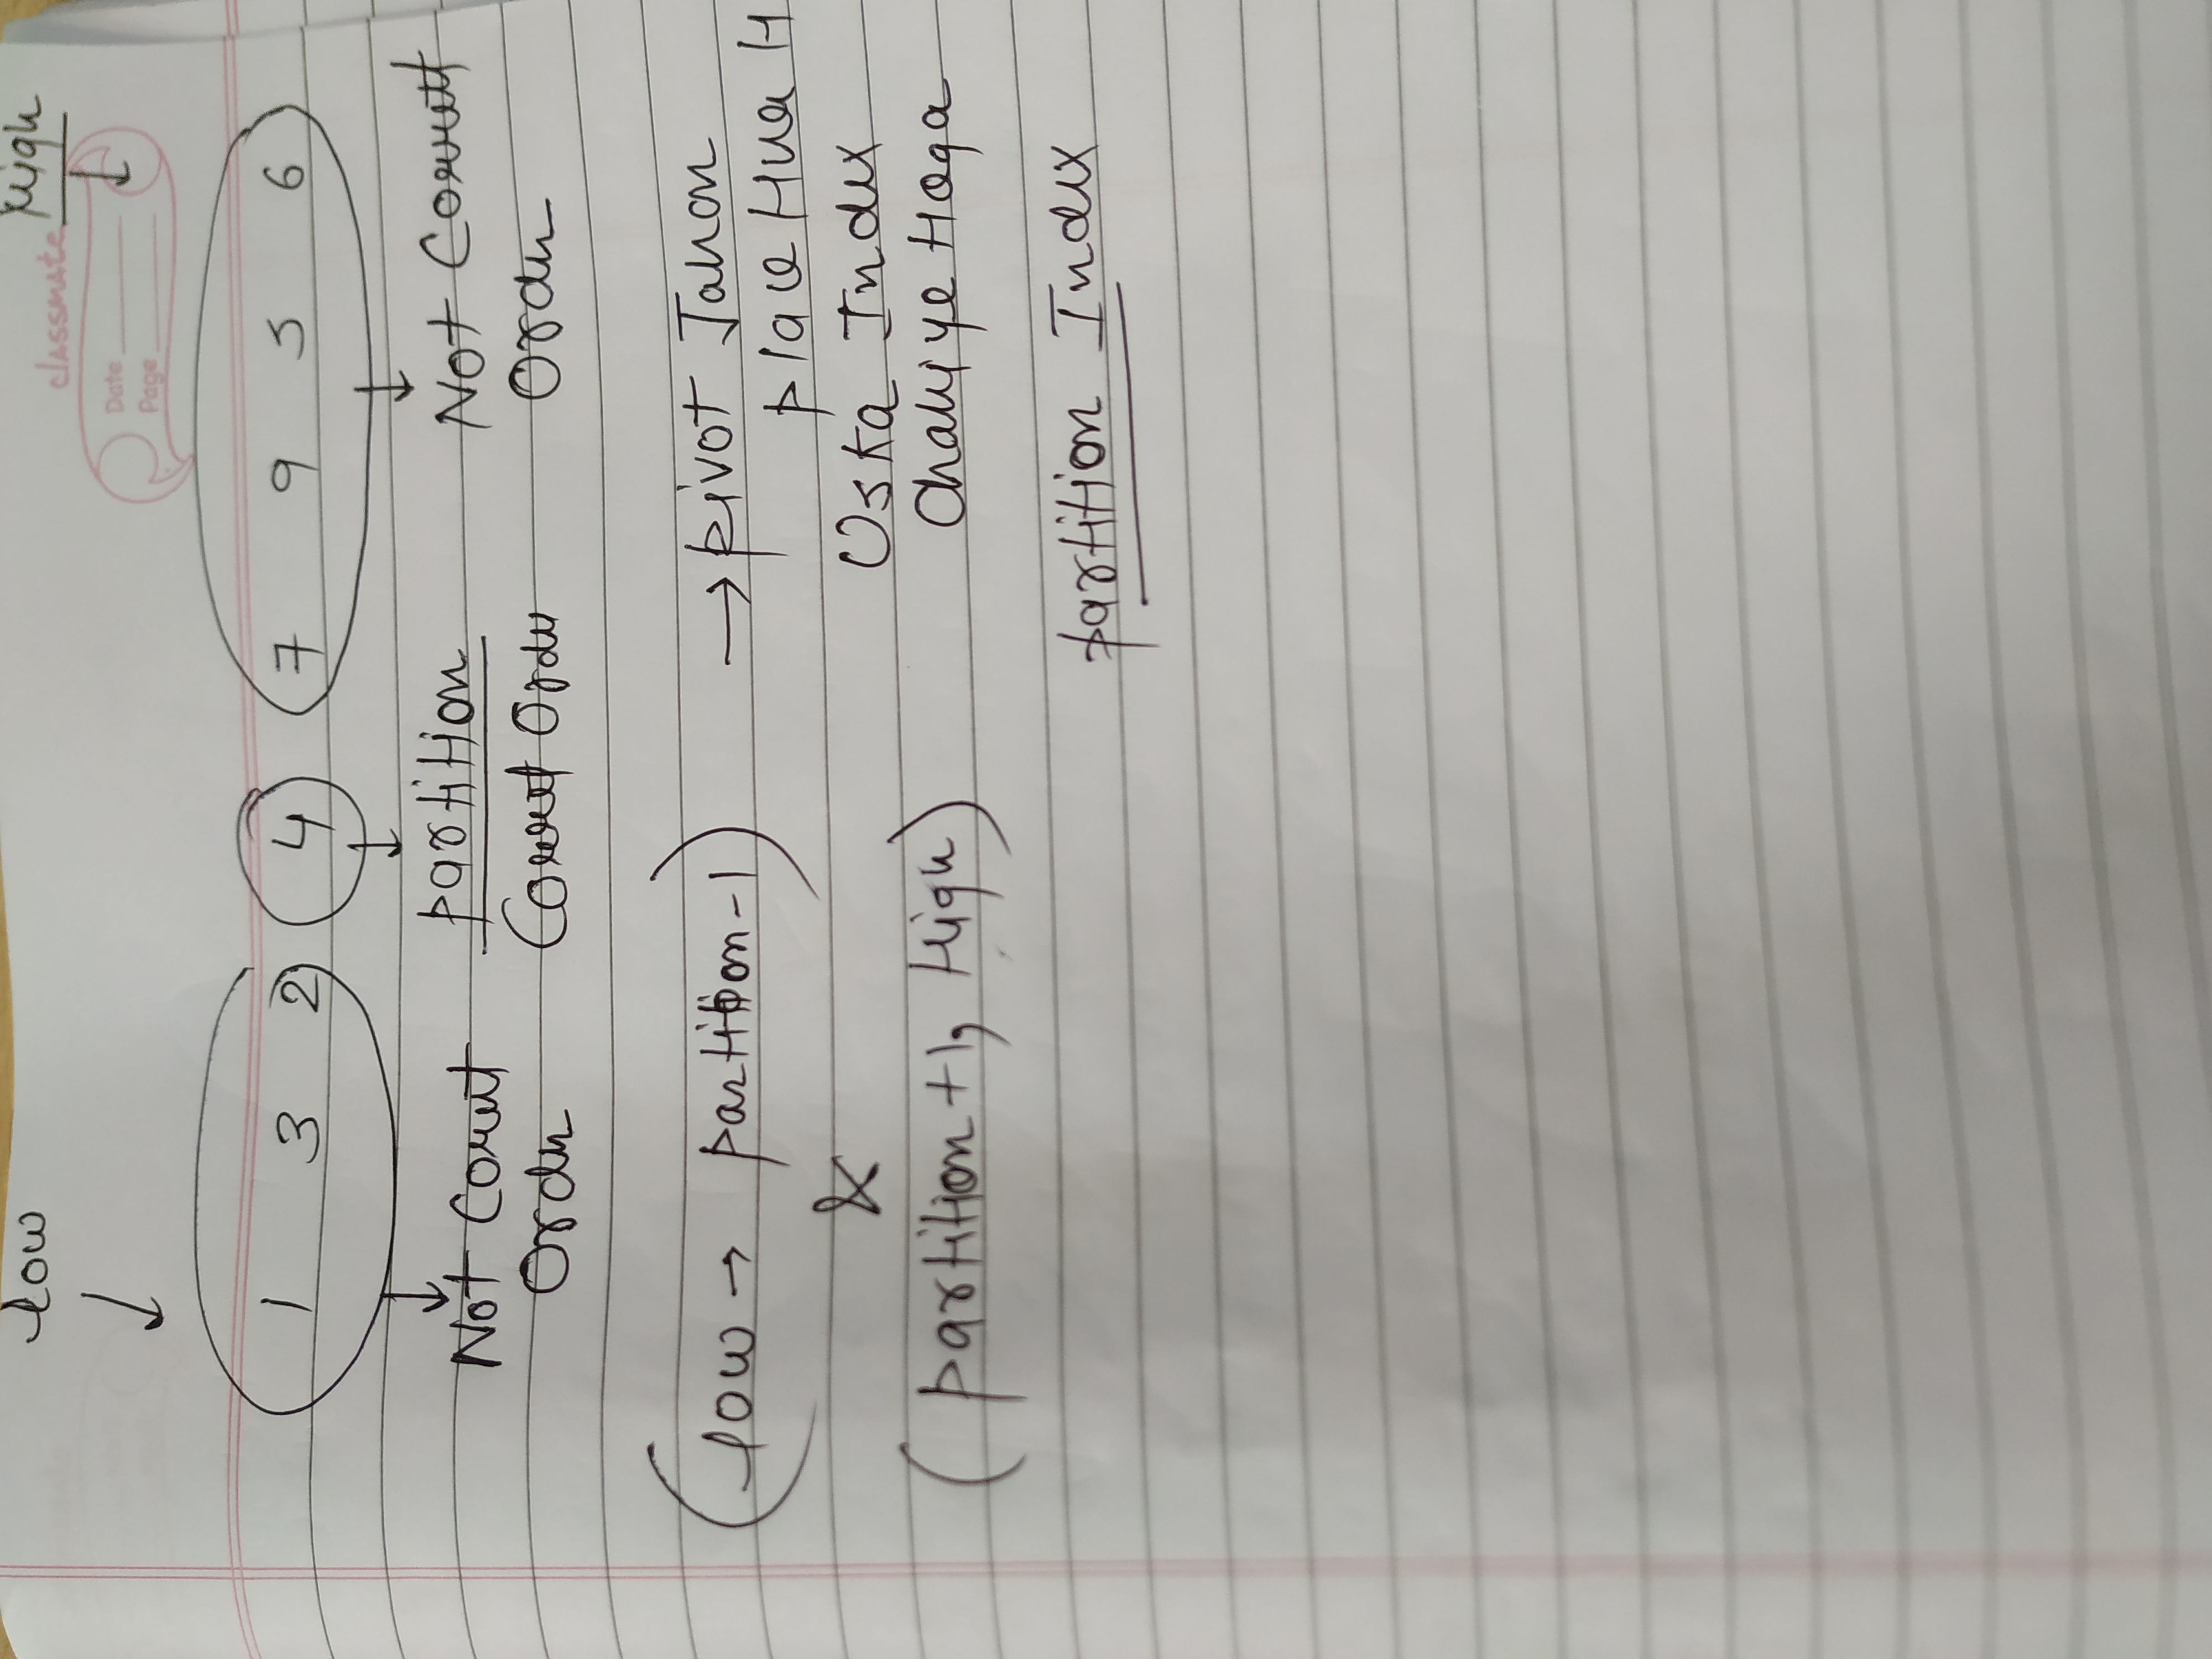 low
High
classmate
Date
Page
1 3 2 4 7 9 5 6
Not Correct Order
partition
Correct Order
Not Correct Order
(low → partition-1)
&
(partition +1, High)
→ pivot Jahon
place Hua H
Uska Index
Chahiye Hoga
partition Index